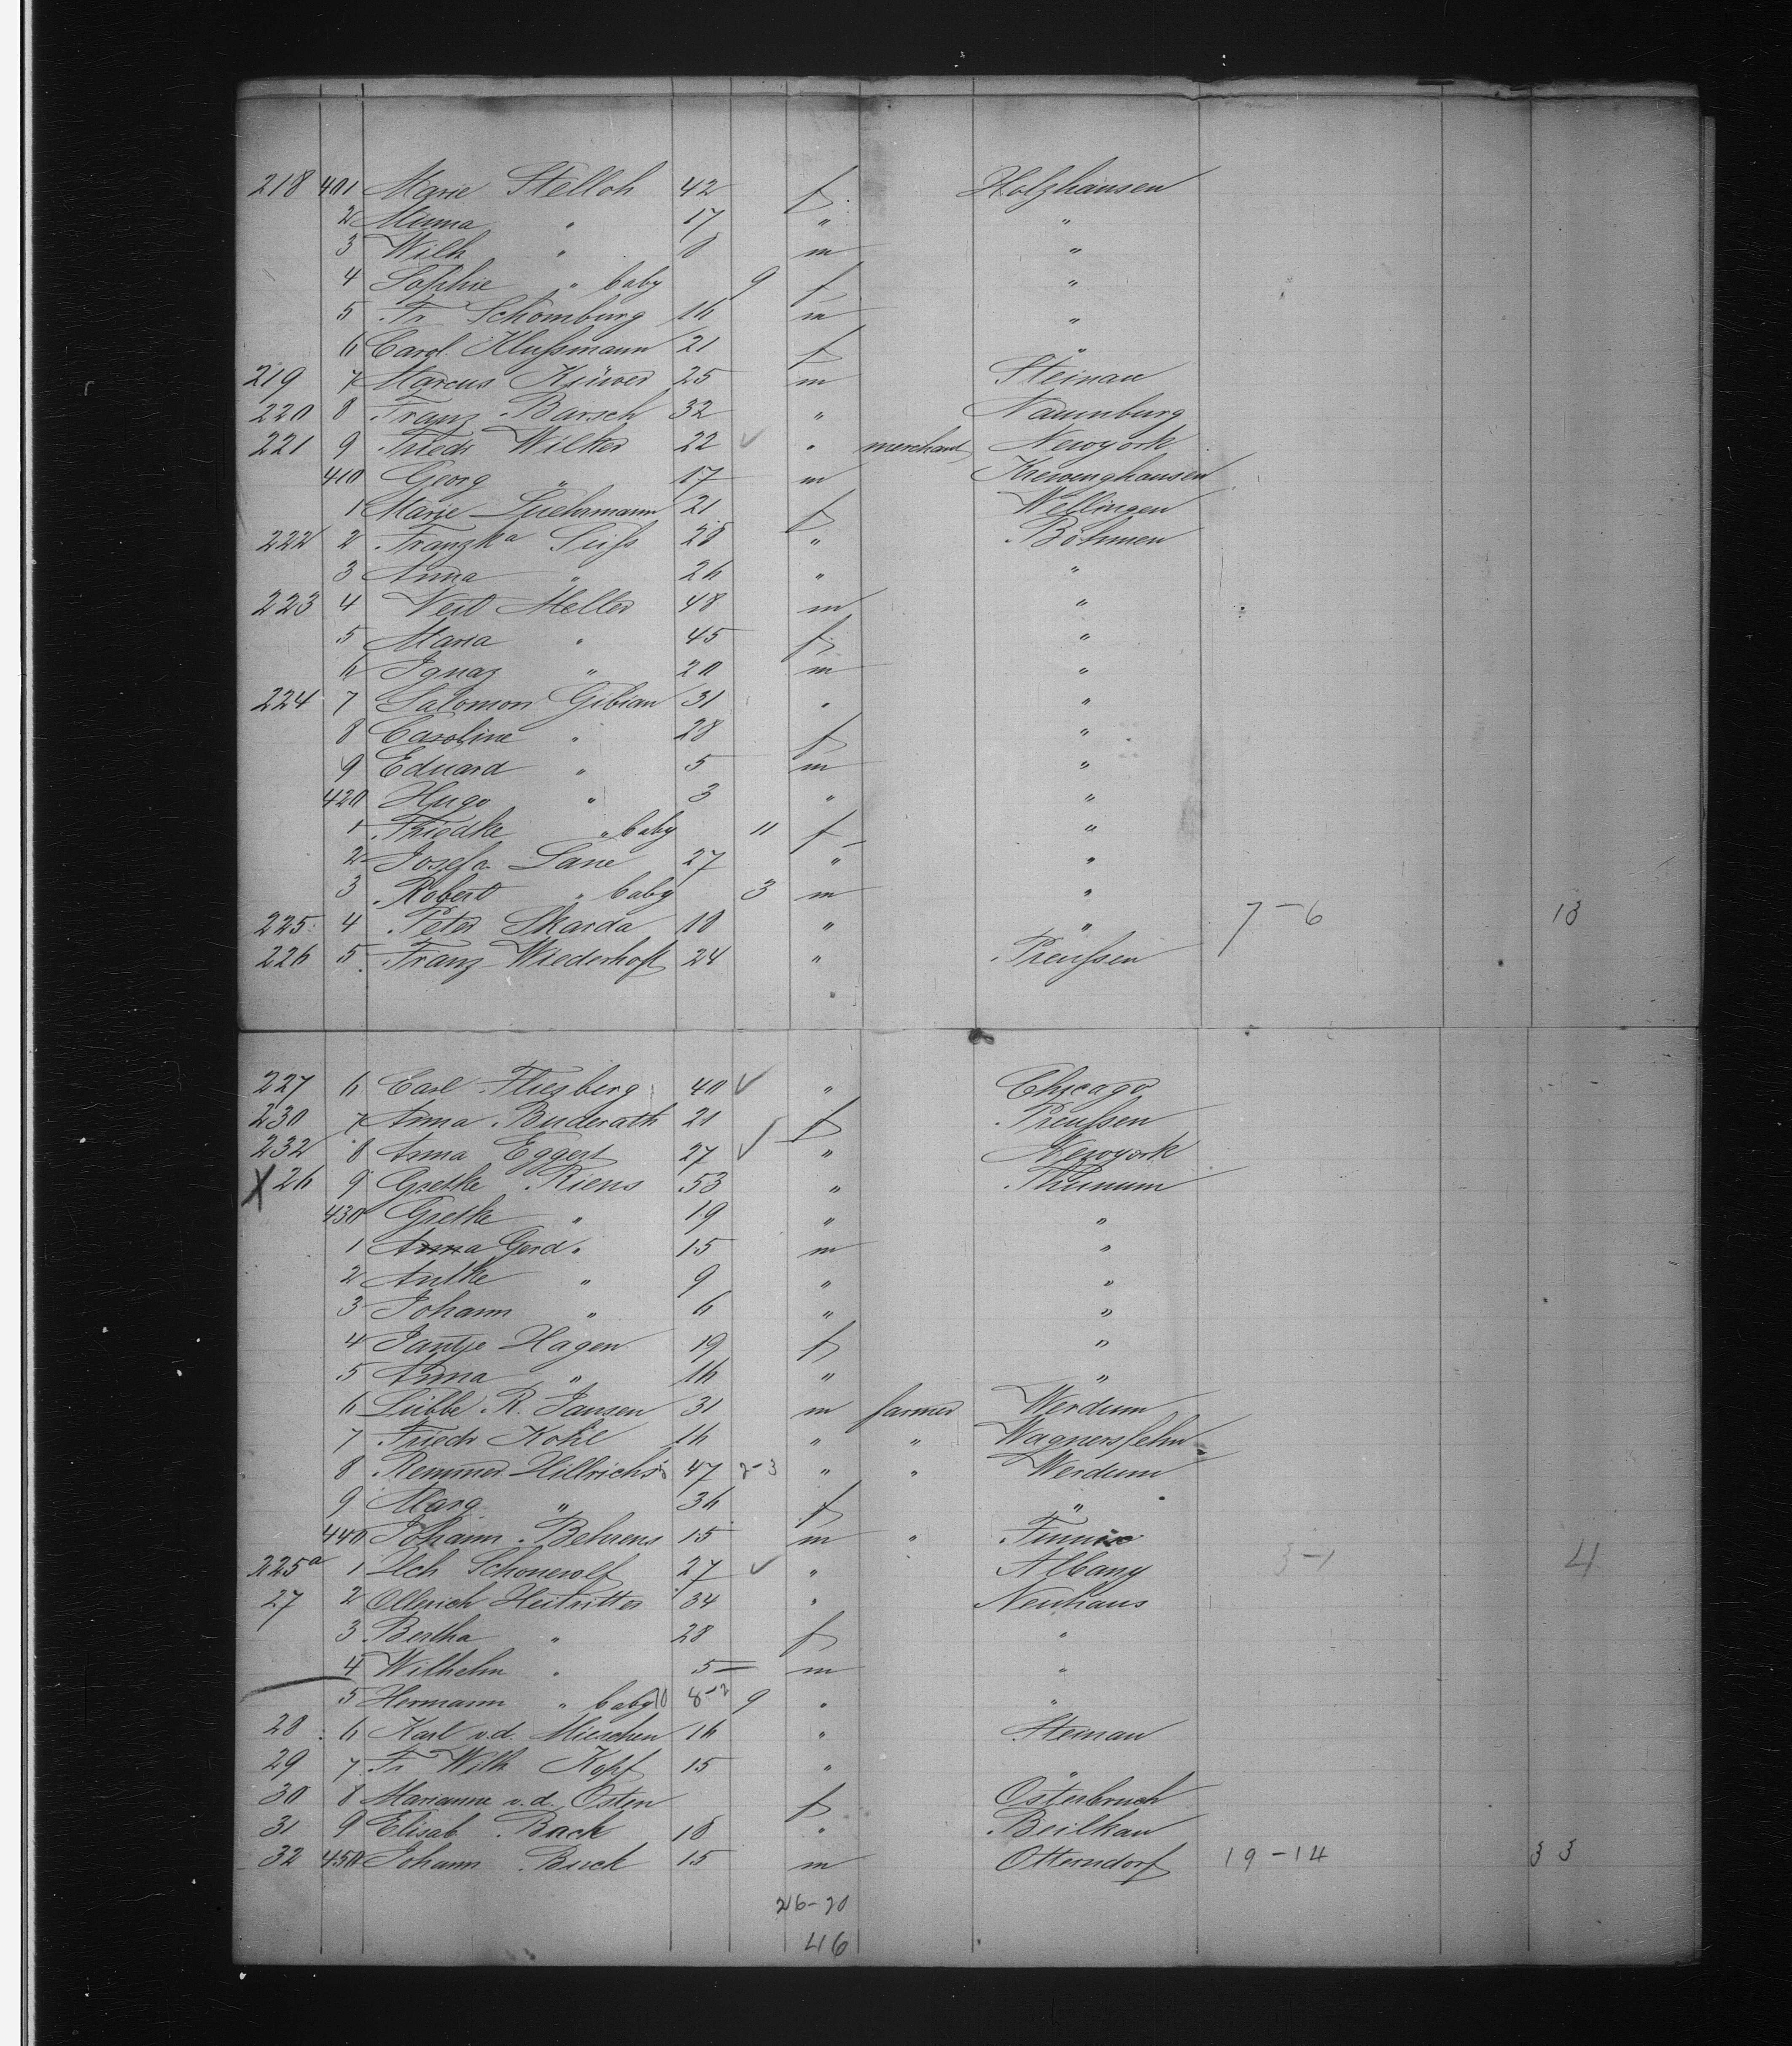 218 401 Marie Stelloh 42 f Holzhausen
2 Minna " 17 " "
3 Wilh " 8 m "
4 Sophie " baby 9 f "
5 Fr Schomburg 16 m "
6 Carol. Klußmann 21 f "
219 7 Marcus Küver 25 m Steinau
220 8 Franz Barsch 32 " Naumburg
221 9 Friedr Wilker 22 ✓ " merchant Newyork
410 Georg " 17 m
1 Marie 21 f Wellingen
222 2 Franzka Süß 28 " Böhmen
3 Anna " 26 " "
223 4 Veit Meller 48 m "
5 Maria " 45 f "
6 Ignaz " 20 m "
224 7 Salomon Gibian 31 " "
8 Caroline " 28 f "
9 Eduard " 5 m "
420 Hugo " 3 " "
1 Friedke " baby 11 f "
2 Josefa 27 " "
3 Robert " baby 3 m "
225 4 Peter Skarda 18 " " 7-6 13
226 5 Franz Wiederhoft 24 " Preußen
227 6 Carl Fliesberg 40 ✓ " Chicago
230 7 Anna Buderath 21 f Preußen
232 8 Anna Eggers 27 ✓ " Newyork
X 26 9 Gretke Riens 53 " Thunum
430 Gretke " 19 " "
1 Anna Gerd " 15 m "
2 Antke " 9 " "
3 Johann " 6 " "
4 Jantje Hagen 19 f "
5 Anna " 16 " "
6 Lübbe R. Jansen 31 m farmer Werdum
7 Friedr Kohl 16 " " Wagnersfehn
8 Remmer Hillrichs 47 2-3 " " Werdum
9 Marg " 36 f "
440 Johann Behrens 15 m "
225a 1 Schonewolf 27 ✓ " Albany 3-1 4
27 2 34 " Neuhaus
3 Bertha " 28 f "
4 Wilhelm " 5 m "
5 Hermann " baby 10 8-12 9 " "
28 6 Karl v.d. Mieschen 16 " Steinau
29 7 Fr Wilh Kopf 15 " "
30 8 Marianne v.d. Osten f Osterbruch
31 9 Elisab Back 18 "
32 450 Johann Buck 15 m Otterndorf 19-14 33
26-20
46